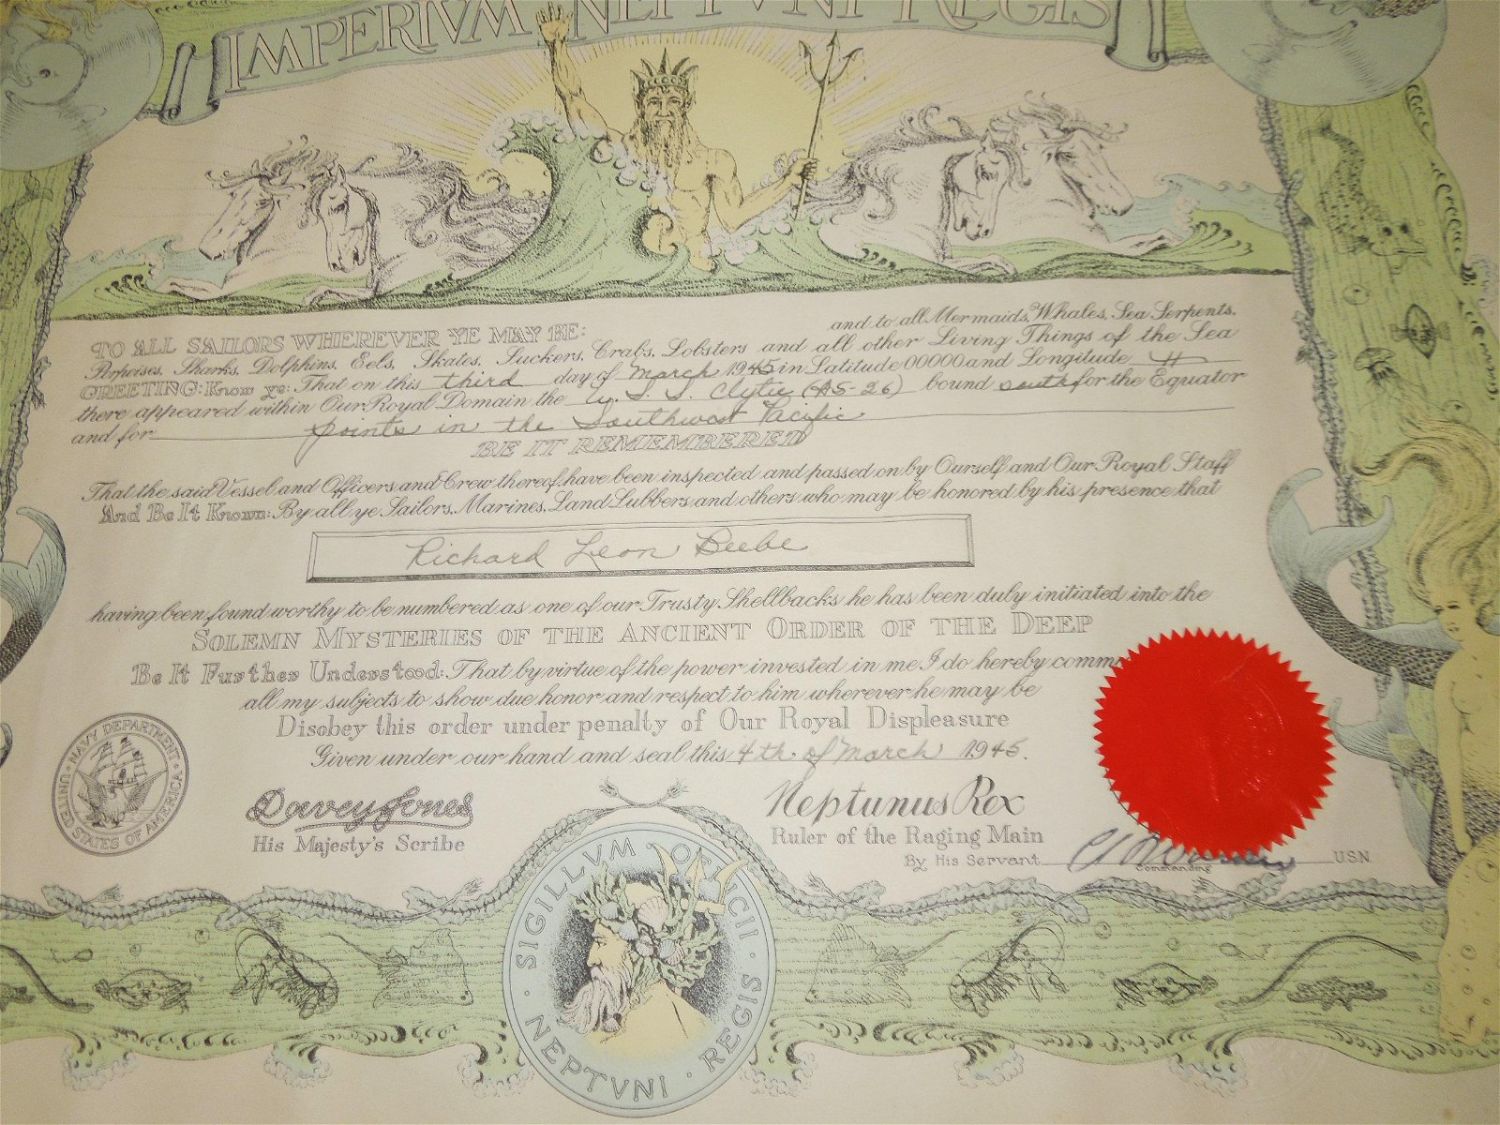 IMPERIVM NEPTVNI REGIS
TO ALL SAILORS WHEREVER YE MAY BE: and to all Mermaids, Whales, Sea Serpents,
Porpoises, Sharks, Dolphins, Eels, Skates, Suckers, Crabs, Lobsters and all other Living Things of the Sea
GREETING: Know ye: That on this third day of March 1945 in Latitude 00000 and Longitude
there appeared within Our Royal Domain the U. S. S. Clytie (AS-26) bound south for the Equator
and for points in the Southwest Pacific
BE IT REMEMBERED
That the said Vessel and Officers and Crew thereof have been inspected and passed on by Ourself and Our Royal Staff
And Be It Known: By all ye Sailors, Marines, Land Lubbers and others who may be honored by his presence that
Richard Leon Beebe
having been found worthy to be numbered as one of our Trusty Shellbacks he has been duly initiated into the
SOLEMN MYSTERIES OF THE ANCIENT ORDER OF THE DEEP
Be It Further Understood: That by virtue of the power invested in me I do hereby comm
all my subjects to show due honor and respect to him wherever he may be
Disobey this order under penalty of Our Royal Displeasure
Given under our hand and seal this 4th of March 1945.
NAVY DEPARTMENT
UNITED STATES OF AMERICA
Davey Jones
His Majesty's Scribe
Neptunus Rex
Ruler of the Raging Main
By His Servant USN
Commanding
SIGILLVM
NEPTVNI REGIS